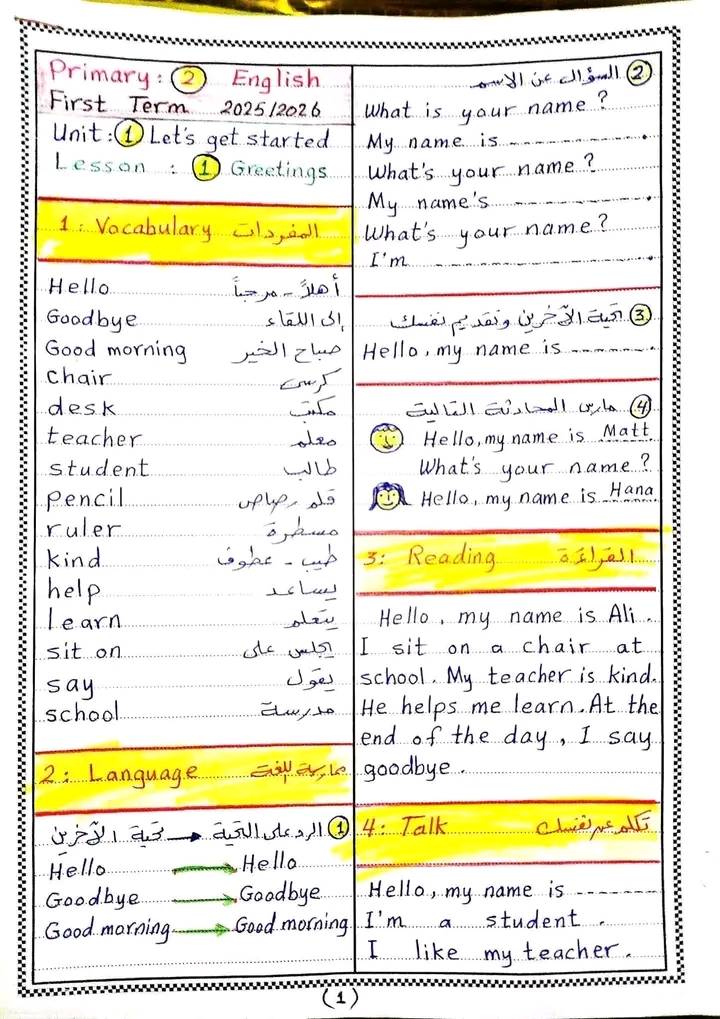 Primary: 2 English
First Term 2025/2026
Unit: 1 Let's get started
Lesson : 1 Greetings
1: Vocabulary المفردات
Hello أهلاً - مرحباً
Goodbye إلى اللقاء
Good morning صباح الخير
Chair كرسى
desk مكتب
teacher معلم
student طالب
pencil قلم رصاص
ruler مسطرة
kind طيب - عطوف
help يساعد
learn يتعلم
sit on يجلس على
say يقول
school مدرسة
2: Language ممارسة اللغة
1 الرد على التحية → تحية الآخرين
Hello → Hello
Goodbye → Goodbye
Good morning → Good morning
2 السؤال عن الاسم
What is your name?
My name is ------------.
What's your name?
My name's ------------.
What's your name?
I'm ------------.
3 تحية الآخرين وتقديم نفسك
Hello, my name is --------.
4 مارس المحادثة التالية
Hello, my name is Matt.
What's your name?
Hello, my name is Hana
3: Reading القراءة
Hello, my name is Ali.
I sit on a chair at
school. My teacher is kind.
He helps me learn. At the
end of the day, I say
goodbye.
4: Talk تكلم عن نفسك
Hello, my name is -------
I'm a student.
I like my teacher.
(1)